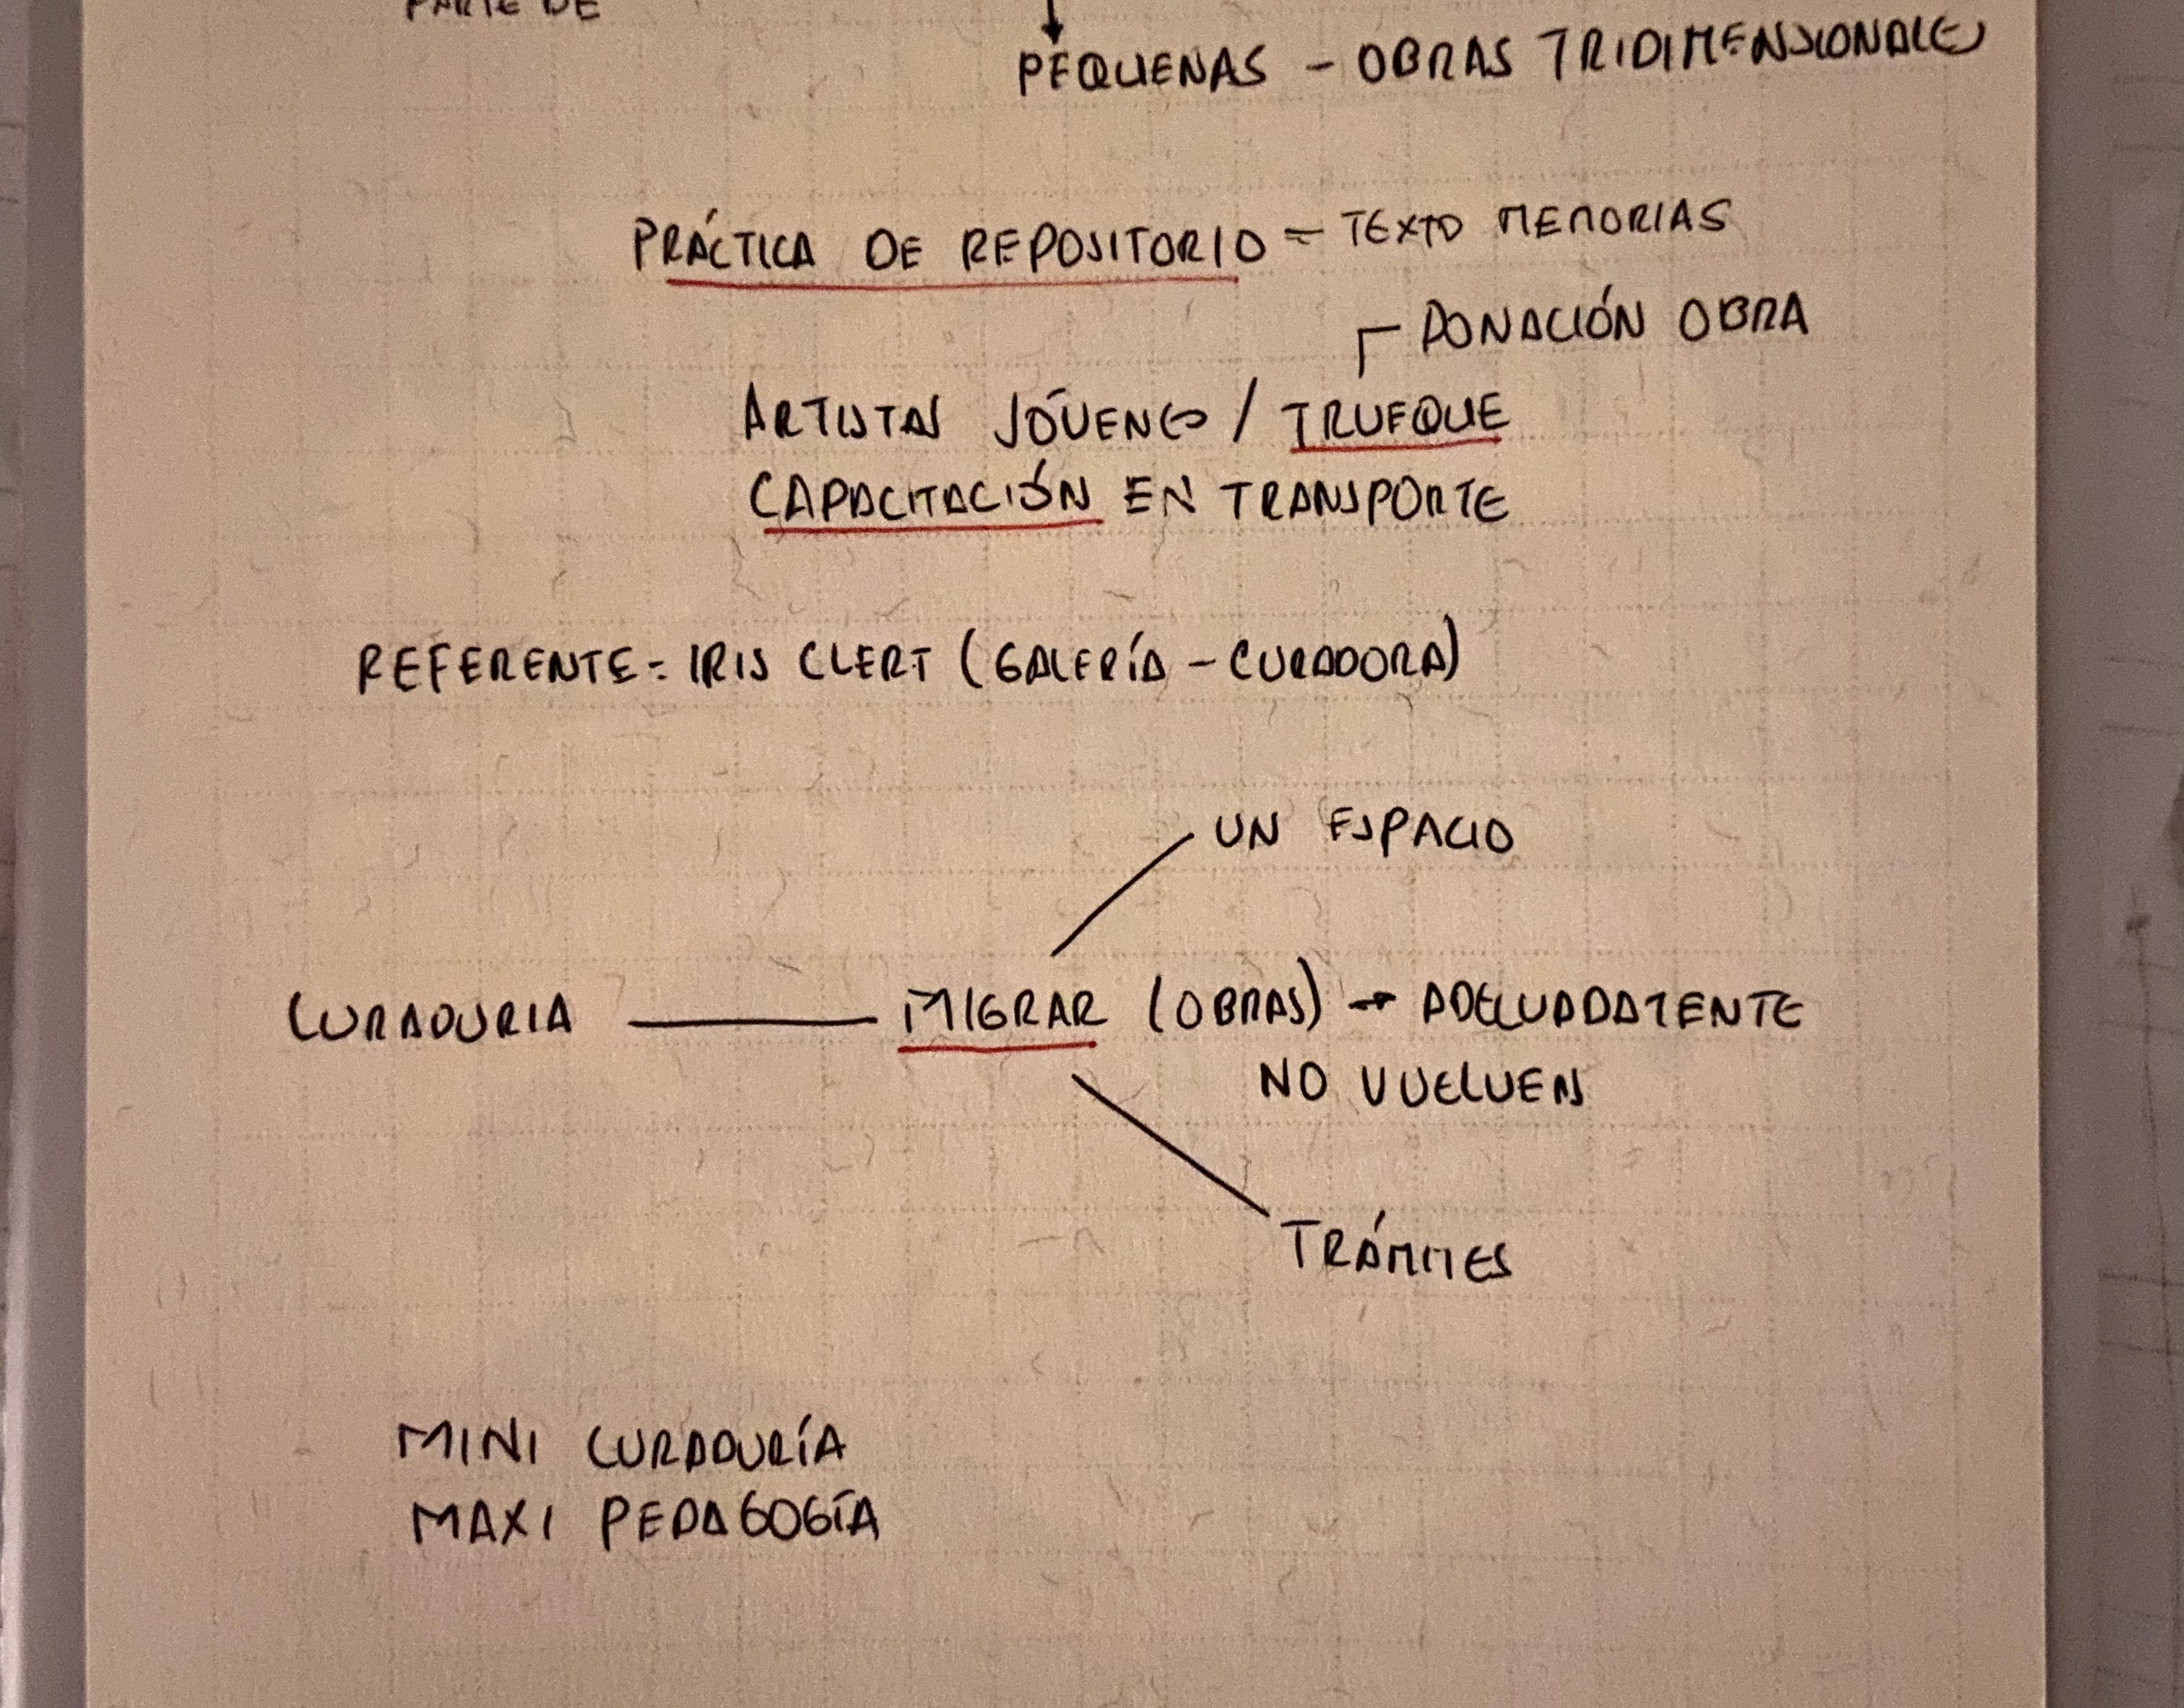 PARTE DE
PEQUENAS - OBRAS TRIDIMENSIONALES
PRÁCTICA DE REPOSITORIO = TEXTO MEMORIAS
DONACIÓN OBRA
ARTISTAS JÓVENES / TRUEQUE
CAPACITACIÓN EN TRANSPORTE
REFERENTE: IRIS CLERT (GALERÍA - CURADORA)
UN ESPACIO
CURADURIA — MIGRAR (OBRAS) → ADECUADAMENTE
NO VUELVEN
TRÁMITES
MINI CURADURÍA
MAXI PEDAGOGÍA